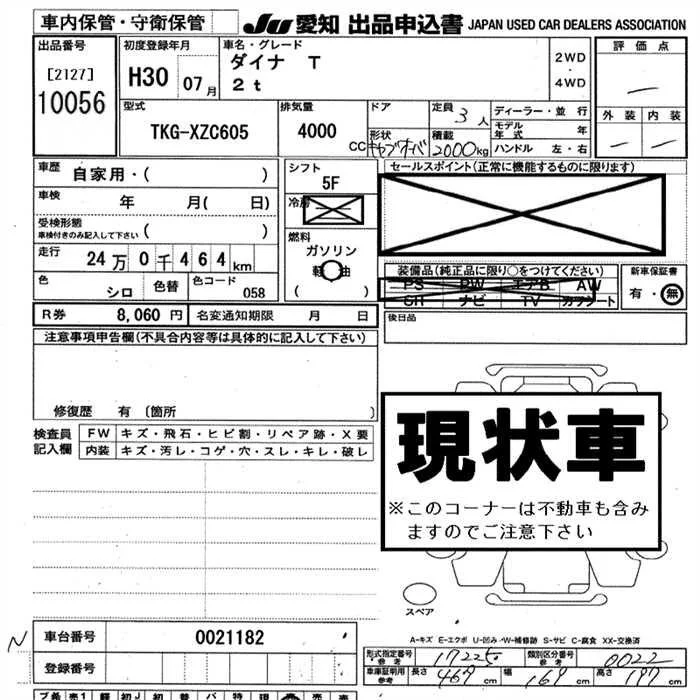 車内保管・守衛保管
JU 愛知 出品申込書 JAPAN USED CAR DEALERS ASSOCIATION
出品番号
[2127]
10056
初度登録年月
H30 07月
車名・グレード
ダイナ T
2t
2WD
・
4WD
評価点
―
外装 内装
― ―
型式
TKG-XZC605
排気量
4000
CC
ドア
形状
キャブオーバ
定員
3人
積載
2000kg
ディーラー・並行
モデル年式 年
ハンドル 左・右
車歴
自家用・( )
車検
年 月( 日)
受検形態
車検付きのみ記入して下さい ( )
走行
24万0千464km
色
シロ
色替
色コード
058
シフト
5F
冷房
燃料
ガソリン
軽油
( )
セールスポイント(正常に機能するものに限ります)
装備品(純正品に限り○をつけてください)
PS PW エアB AW
SR ナビ TV カワシート
新車保証書
有・無
R券 8,060円 名変通知期限 月 日
後日品
注意事項申告欄(不具合内容等は具体的に記入して下さい)
修復歴 有 〔箇所 〕
検査員
記入欄
FW キズ・飛石・ヒビ割・リペア跡・X要
内装 キズ・汚レ・コゲ・穴・スレ・キレ・破レ
現状車
※このコーナーは不動車も含み
ますのでご注意下さい
スペア
A-キズ E-エクボ U-凹み W-補修跡 S-サビ C-腐食 XX-交換済
N
車台番号 0021182
登録番号
形式指定番号
参考
17225
類別区分番号
参考
0022
車庫証明用
参考
長さ 469cm 幅 169cm 高さ 197cm